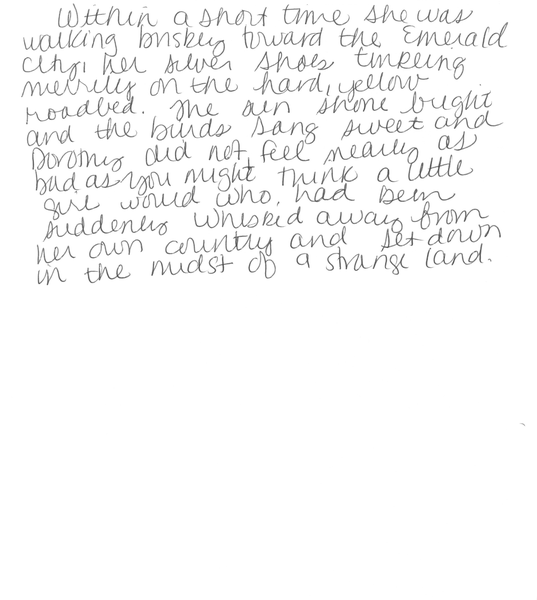 Within a short time she was
walking briskly toward the Emerald
City, her silver shoes tinkling
merrily on the hard, yellow
roadbed. The sun shone bright
and the birds sang sweet and
Dorothy did not feel nearly as
bad as you might think a little
girl would who, had been
suddenly whisked away from
her own country and set down
in the midst of a strange land.